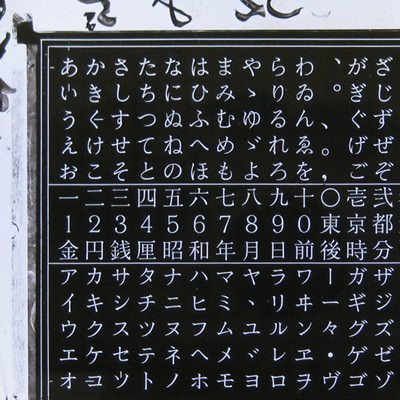 あいうえお
かきくけこ
さしすせそ
たちつてと
なにぬねの
はひふへほ
まみむめも
やゝゆゞよ
らりるれろ
わゐんゑを
がぎぐげご
ざじずぜぞ
一1金
二2円
三3銭
四4厘
五5昭
六6和
七7年
八8月
九9日
十0前
〇東後
壱京時
弐都分
アイウエオ
カキクケコ
サシスセソ
タチツテト
ナニヌネノ
ハヒフヘホ
マミムメモ
ヤヽユヾヨ
ラリルレロ
ワヰンヱヲ
ガギグゲゴ
ザジズゼゾ